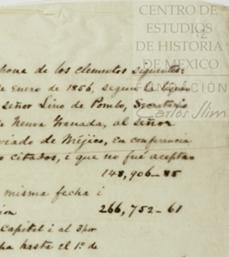 CENTRO DE
ESTUDIOS
DE HISTORIA
DE MEXICO
FUNDACIÓN
Carlos Slim
de los elementos siguientes:
Enero de 1856, segun la
señor Lino de Pombo, Secretario
Nueva Granada, al señor
de Méjico, en conferencia
citados, i que no fué
148,906-85
misma fecha i
266,752-61
Capital i al 3 por
hasta el 1º de